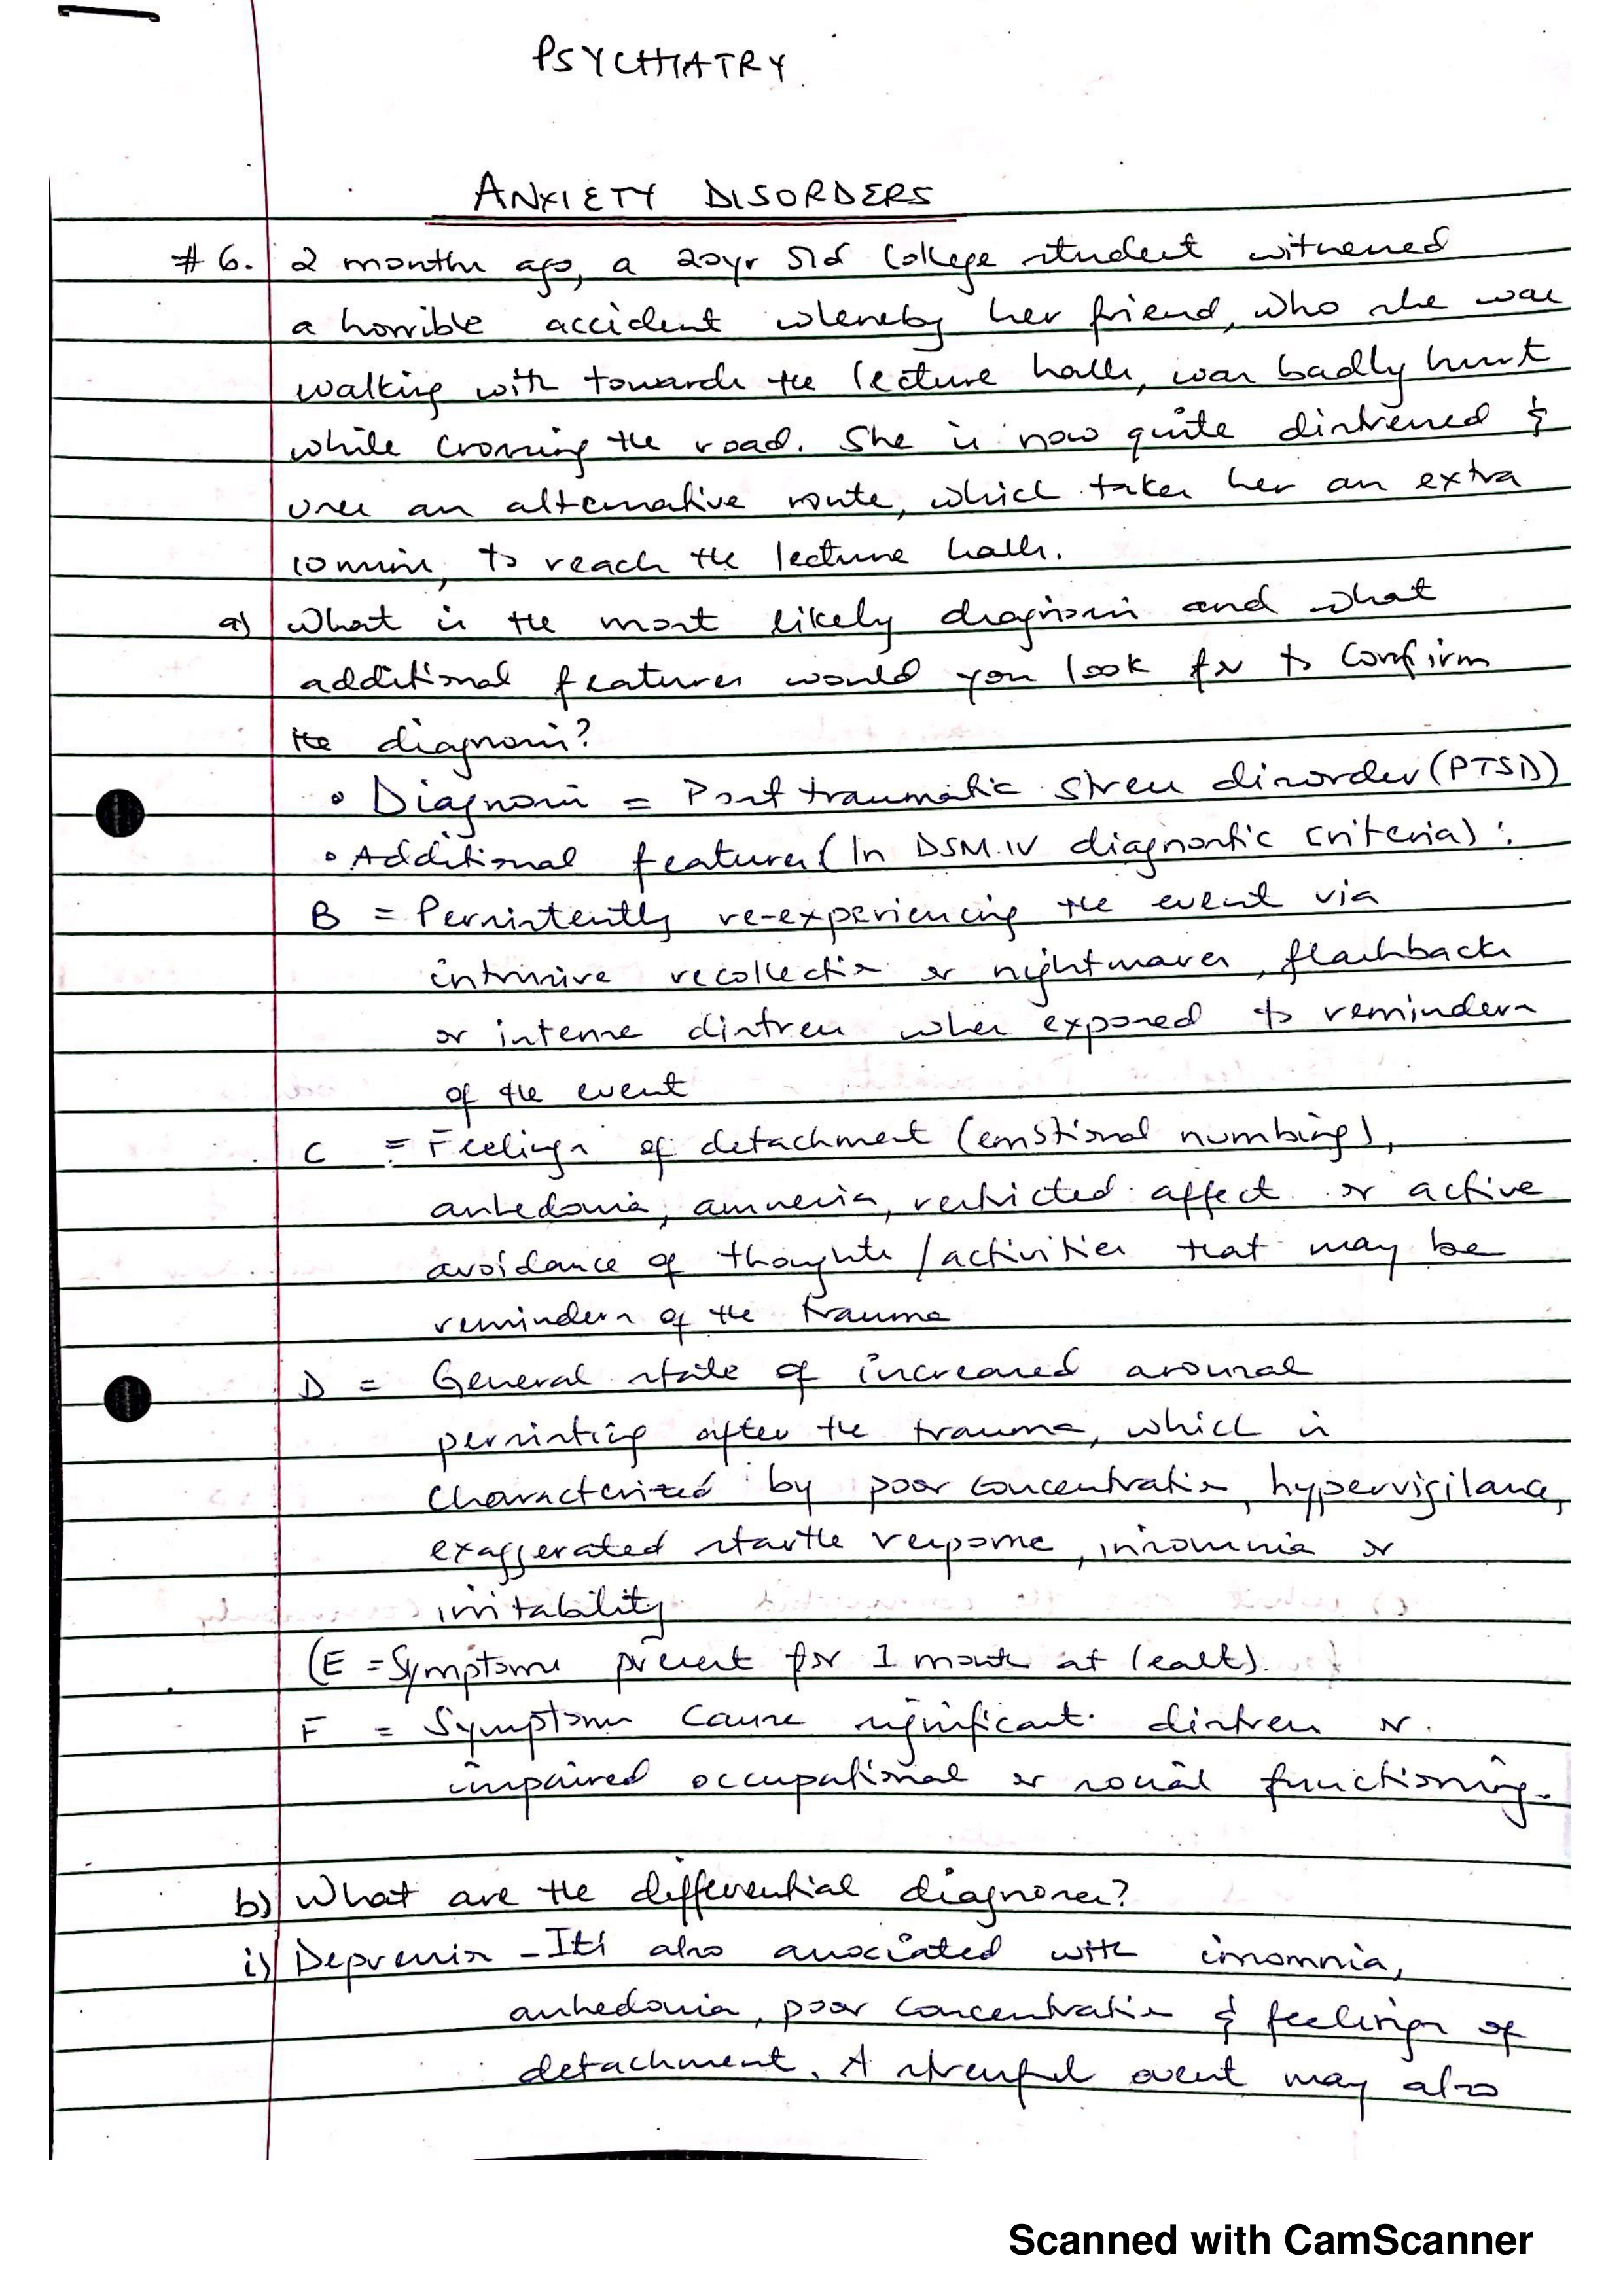 PSYCHIATRY
ANXIETY DISORDERS
# 6. 2 months ago, a 20yr old college student witnessed
a horrible accident whereby her friend, who she was
walking with towards the lecture halls, was badly hurt
while crossing the road. She is now quite distressed &
uses an alternative route, which takes her an extra
10 mins, to reach the lecture halls.
a) What is the most likely diagnosis and what
additional features would you look for to confirm
the diagnosis?
• Diagnosis = Post traumatic stress disorder (PTSD)
• Additional features (In DSM.IV diagnostic criteria):
B = Persistently re-experiencing the event via
intrusive recollection or nightmares, flashbacks
or intense distress when exposed to reminders
of the event
C = Feelings of detachment (emotional numbing),
anhedonia, amnesia, restricted affect or active
avoidance of thoughts / activities that may be
reminders of the trauma
D = General state of increased arousal
persisting after the trauma, which is
characterized by poor concentration, hypervigilance,
exaggerated startle response, insomnia or
irritability
(E = Symptoms present for 1 month at least).
F = Symptoms cause significant distress or
impaired occupational or social functioning.
b) What are the differential diagnoses?
i) Depression - It's also associated with insomnia,
anhedonia, poor concentration & feelings of
detachment. A stressful event may also
Scanned with CamScanner